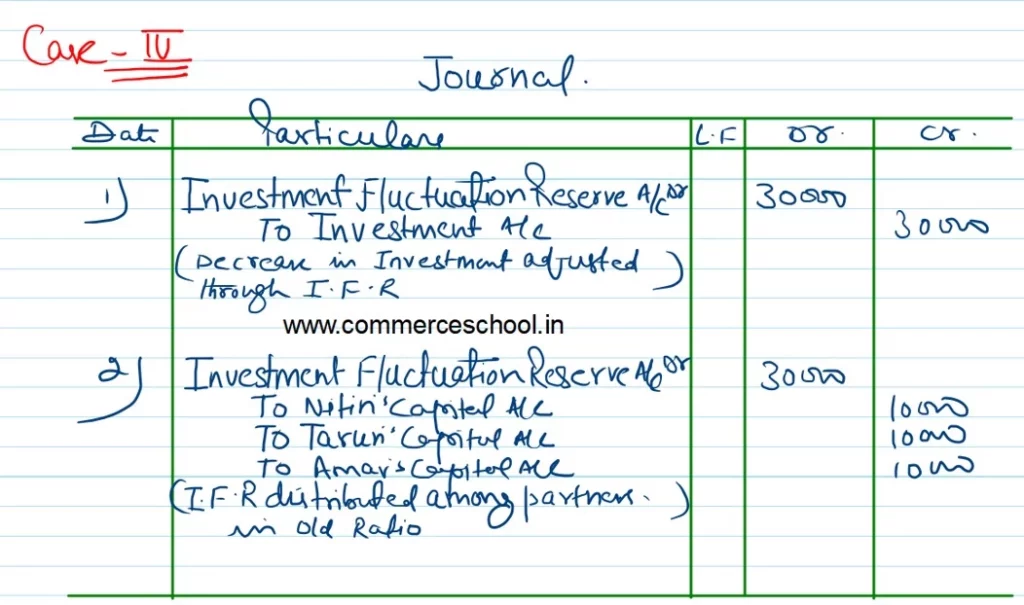 Case - IV
Journal.
Date Particulars L.F Dr. Cr.
1) Investment Fluctuation Reserve A/c Dr 30000
To Investment A/c 30000
(Decrease in Investment adjusted
through I.F.R)
www.commerceschool.in
2) Investment Fluctuation Reserve A/c Dr 30000
To Nitin's Capital A/c 10000
To Tarun's Capital A/c 10000
To Amar's Capital A/c 10000
(I.F.R distributed among partners.
in Old Ratio)